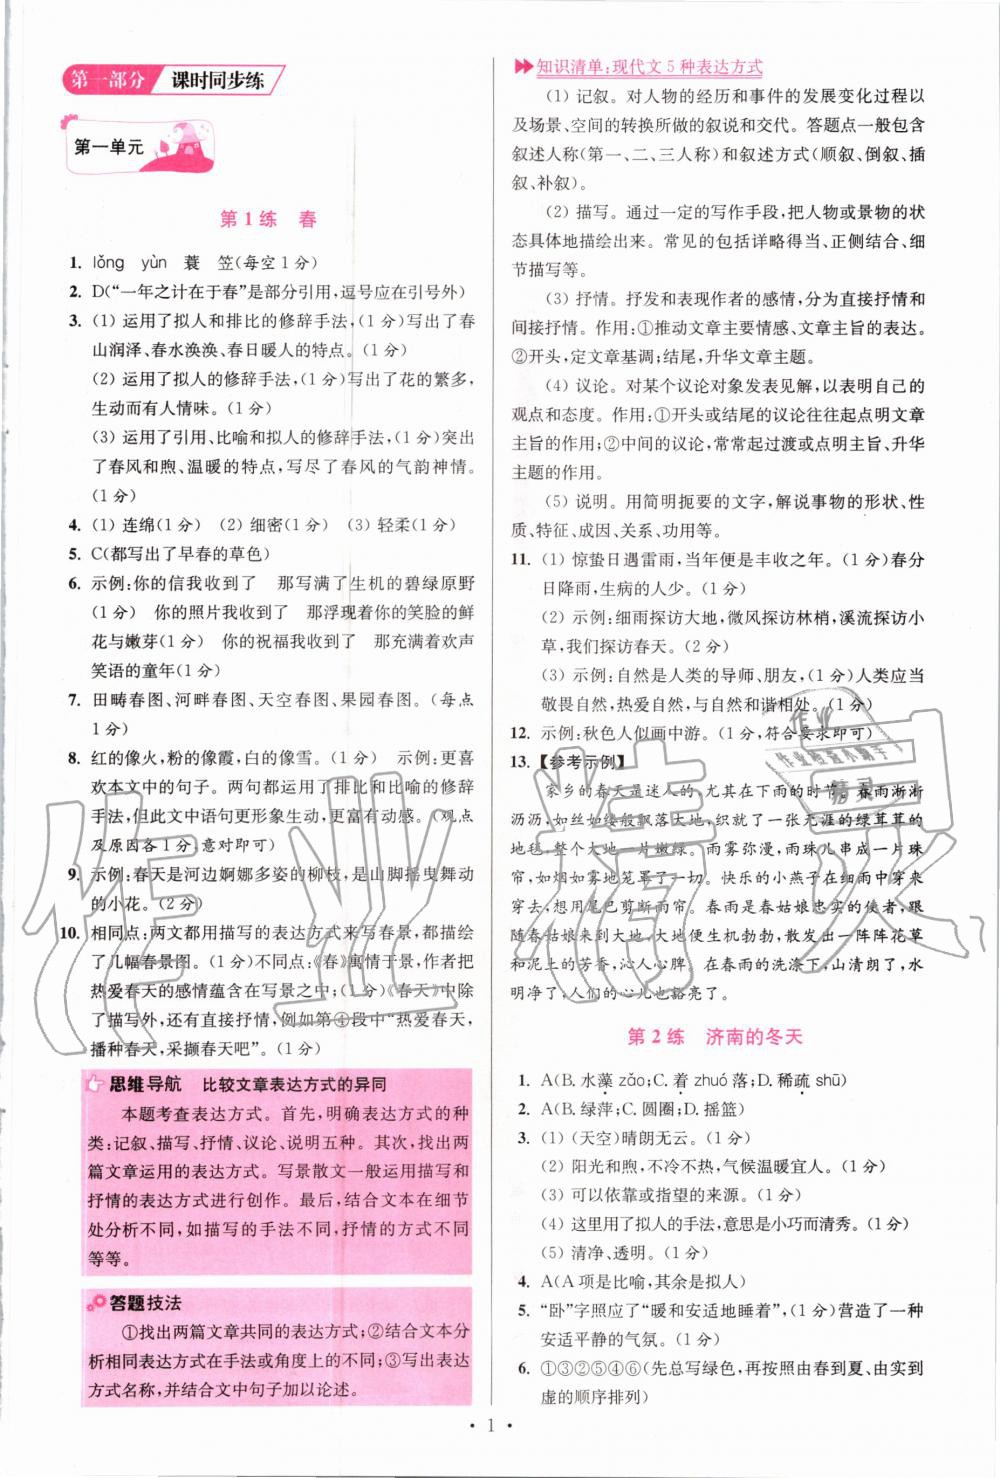 第一部分 课时同步练
第一单元
第1练 春
1. lǒng yùn 蓑 笠(每空1分)
2. D(“一年之计在于春”是部分引用,逗号应在引号外)
3. (1) 运用了拟人和排比的修辞手法,(1分)写出了春
山润泽、春水涣涣、春日暖人的特点。(1分)
(2) 运用了拟人的修辞手法,(1分)写出了花的繁多,
生动而有人情味。(1分)
(3) 运用了引用、比喻和拟人的修辞手法,(1分)突出
了春风和煦、温暖的特点,写尽了春风的气韵神情。
(1分)
4. (1) 连绵(1分) (2) 细密(1分) (3) 轻柔(1分)
5. C(都写出了早春的草色)
6. 示例:你的信我收到了 那写满了生机的碧绿原野
(1分) 你的照片我收到了 那浮现着你的笑脸的鲜
花与嫩芽(1分) 你的祝福我收到了 那充满着欢声
笑语的童年(1分)
7. 田畴春图、河畔春图、天空春图、果园春图。(每点
1分)
8. 红的像火,粉的像霞,白的像雪。(1分) 示例:更喜
欢本文中的句子。两句都运用了排比和比喻的修辞
手法,但此文中语句更形象生动,更有动感。(观点
及原因各1分,意对即可)
9. 示例:春天是河边婀娜多姿的柳枝,是山脚摇曳舞动
的小花。(2分)
10. 相同点:两文都用描写的表达方式来写春景,都描绘
了几幅春景图。(1分)不同点:《春》寓情于景,作者把
热爱春天的感情蕴含在写景之中;(1分)《春天》中除
了描写外,还有直接抒情,例如第④段中“热爱春天,
播种春天,采撷春天吧”。(1分)
思维导航 比较文章表达方式的异同
本题考查表达方式。首先,明确表达方式的种
类:记叙、描写、抒情、议论、说明五种。其次,找出两
篇文章运用的表达方式。写景散文一般运用描写和
抒情的表达方式进行创作。最后,结合文本在细节
处分析不同,如描写的手法不同,抒情的方式不同
等等。
答题技法
①找出两篇文章共同的表达方式;②结合文本分
析相同表达方式在手法或角度上的不同;③写出表达
方式名称,并结合文中句子加以论述。
知识清单:现代文5种表达方式
(1) 记叙。对人物的经历和事件的发展变化过程以
及场景、空间的转换所做的叙说和交代。答题点一般包含
叙述人称(第一、二、三人称)和叙述方式(顺叙、倒叙、插
叙、补叙)。
(2) 描写。通过一定的写作手段,把人物或景物的
状态具体地描绘出来。常见的包括详略得当、正侧结合、细
节描写等。
(3) 抒情。抒发和表现作者的感情,分为直接抒情和
间接抒情。作用:①推动文章主要情感、文章主旨的表达。
②开头,定文章基调;结尾,升华文章主题。
(4) 议论。对某个议论对象发表见解,以表明自己的
观点和态度。作用:①开头或结尾的议论往往起点明文章
主旨的作用;②中间的议论,常常起过渡或点明主旨、升华
主题的作用。
(5) 说明。用简明扼要的文字,解说事物的形状、性
质、特征、成因、关系、功用等。
11. (1) 惊蛰日遇雷雨,当年便是丰收之年。(1分)春分
日降雨,生病的人少。(1分)
(2) 示例:细雨探访大地,微风探访林梢,溪流探访小
草,我们探访春天。(2分)
(3) 示例:自然是人类的导师、朋友,(1分)人类应当
敬畏自然,热爱自然,与自然和谐相处。(1分)
12. 示例:秋色人似画中游。(1分,符合要求即可)
13. 【参考示例】
家乡的春天是迷人的,尤其在下雨的时节。春雨淅淅
沥沥,如丝如缕般飘落大地,织就了一张无涯的绿茸茸的
地毯,整个大地一片嫩绿。雨雾弥漫,雨珠儿串成一片珠
帘,如烟如雾地笼罩了一切。快乐的小燕子在细雨中穿来
穿去,想用尾巴剪断雨帘。春雨是春姑娘忠实的使者,跟
随春姑娘来到大地,大地便生机勃勃,散发出一阵阵花草
和泥土的芳香,沁人心脾。在春雨的洗涤下,山清朗了,水
明净了,人们的心儿也豁亮了。
第2练 济南的冬天
1. A(B. 水藻 zǎo;C. 着 zhuó 落;D. 稀疏 shū)
2. A(B. 绿萍;C. 圆圈;D. 摇篮)
3. (1) (天空)晴朗无云。(1分)
(2) 阳光和煦,不冷不热,气候温暖宜人。(1分)
(3) 可以依靠或指望的来源。(1分)
(4) 这里用了拟人的手法,意思是小巧而清秀。(1分)
(5) 清净、透明。(1分)
4. A(A项是比喻,其余是拟人)
5. “卧”字照应了“暖和安适地睡着”,(1分)营造了一种
安适平静的气氛。(1分)
6. ①③②⑤④⑥(先总写绿色,再按照由春到夏、由实到
虚的顺序排列)
• 1 •
作业精灵